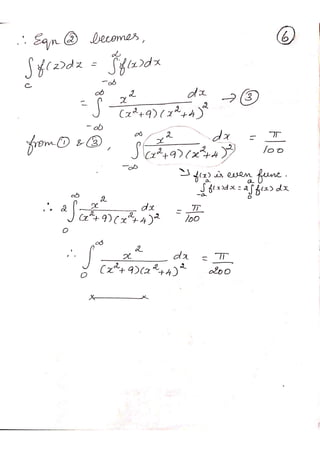 ∴ Eqn ② becomes, ⑥
∫_c f(z)dz = ∫_{-∞}^{∞} f(x)dx
= ∫_{-∞}^{∞} x²/((x²+9)(x²+4)²) dx → ③
from ① & ③, ∫_{-∞}^{∞} x²/((x²+9)(x²+4)²) dx = π/100
f(x) is even func.
∫_{-a}^{a} f(x)dx = 2∫_0^a f(x)dx
∴ 2∫_0^∞ x²/((x²+9)(x²+4)²) dx = π/100
∴ ∫_0^∞ x²/((x²+9)(x²+4)²) dx = π/200